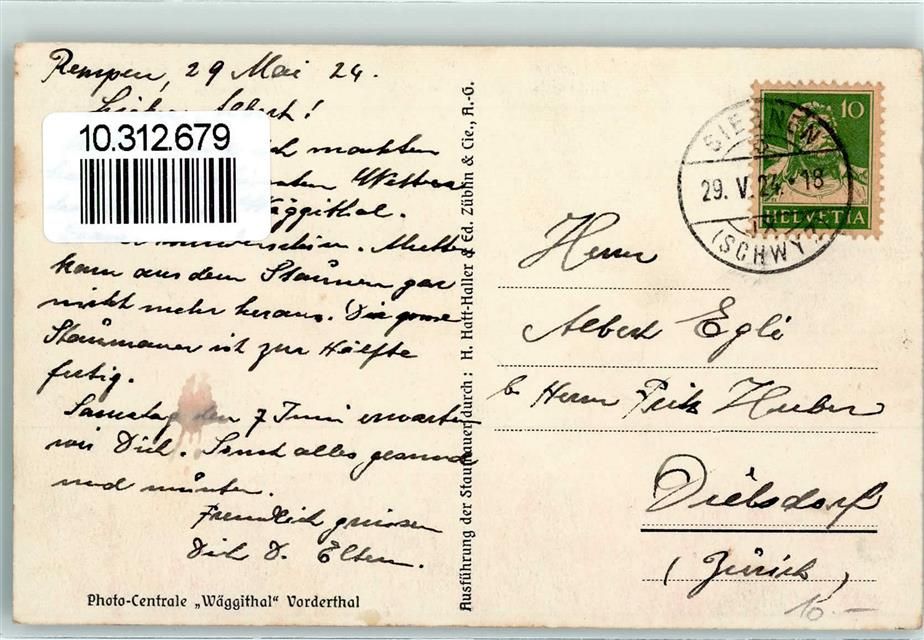 Rempen, 29 Mai 24.
Albert!
10.312.679
machten
Wetter
Wäggithal.
Mutter
kam aus dem Staunen gar
nicht mehr heraus. Die grosse
Staumauer ist zur Hälfte
fertig.
Samstag den 7 Juni erwarten
wir Dich. Sonst alles gesund
und munter.
Freundlich grüssen
Dich D. Eltern.
Photo-Centrale „Wäggithal" Vorderthal
Ausführung der Staumauer durch: H. Hatt-Haller & Ed. Züblin & Cie., A.-G.
10
HELVETIA
SIEBNEN
29. V. 24. - 18
(SCHWYZ)
Herrn
Albert Egli
b/ Herrn Fritz Huber
Dielsdorf
(Zürich)
10.—